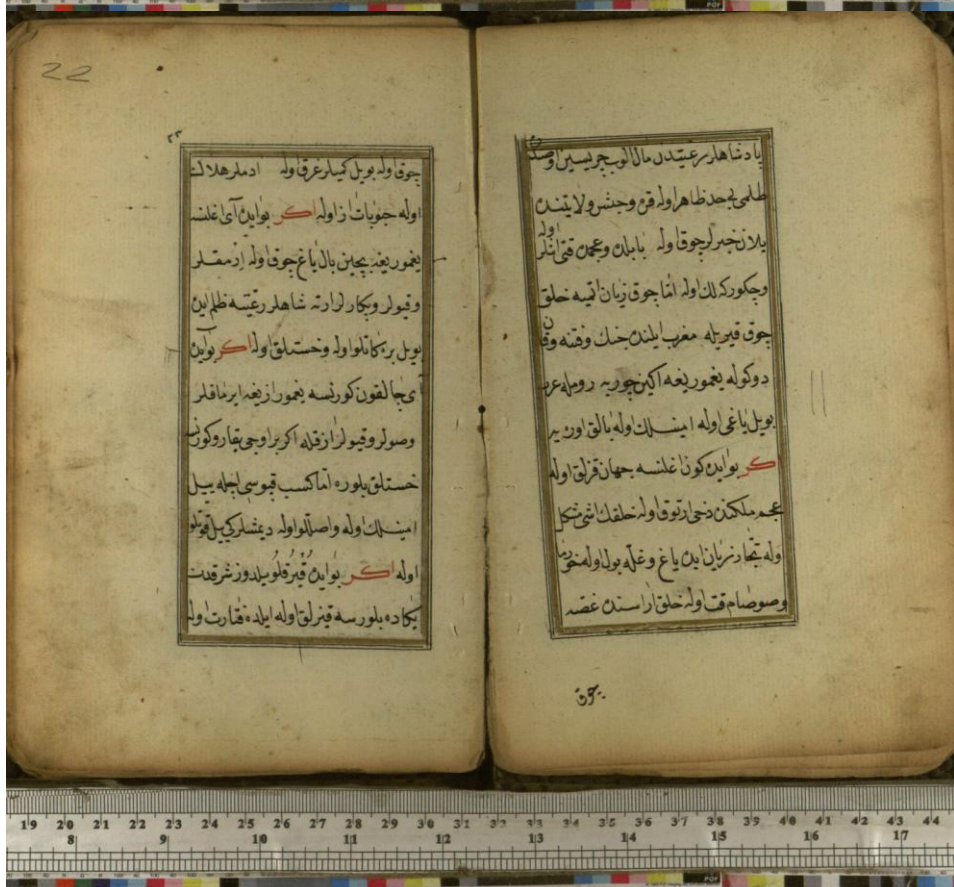 پادشاهلر رعیتدن مال الوب چریسین اوصدن
ظلمی بی حد ظاهر اوله قرن وحبش ولایتنده
یلان خبرلر چوق اوله بابلده وعجمده قتی انلر اوله
وچکورکه لك اوله اما چوق زیان اتمیه خلق
چوق قیریله مغرب ایلنده جنك وفتنه وقان
دوکوله یغمور یغه اکین چوریه رومله عرب
بویل یاغی اوله امینلك اوله بالق اوزیر
اکر بوایده کون اغلنسه جهان قزلق اوله
عجم ملکنده دخی ارتوق اوله خلقك ایشی مشکل
اوله تجار زیان ایده یاغ وغله بول اوله خورما
وصوصام قت اوله خلق اراسنده غصه
چوق
22
۲۲
چوق اوله بویل کمیلر غرق اوله ادملر هلاك
اوله حبوبات از اوله اکر بوایده آی اغلنسه
یغمور یغه بچین بال یاغ چوق اوله ارمقلر
وقیولر وبکارلر ارته شاهلر رعیتسه ظلم ایده
بویل برکاتلو اوله وخستلق اوله اکر بوایده
آی چالقون کورنسه یغمور از یغه ایرماقلر
وصولر وقیولر ازقله اکر براوجی یقارو کورنسه
خستلق بلوره اما کسب قپوسی اچله ییل
امینلك اوله واصللو اوله دیمشلرکی ییل قوتلو
اوله اکر بوایده قیرقلو یلدوز شرقدن
یکاده بلورسه قیزلق اوله ایلده قارت اوله